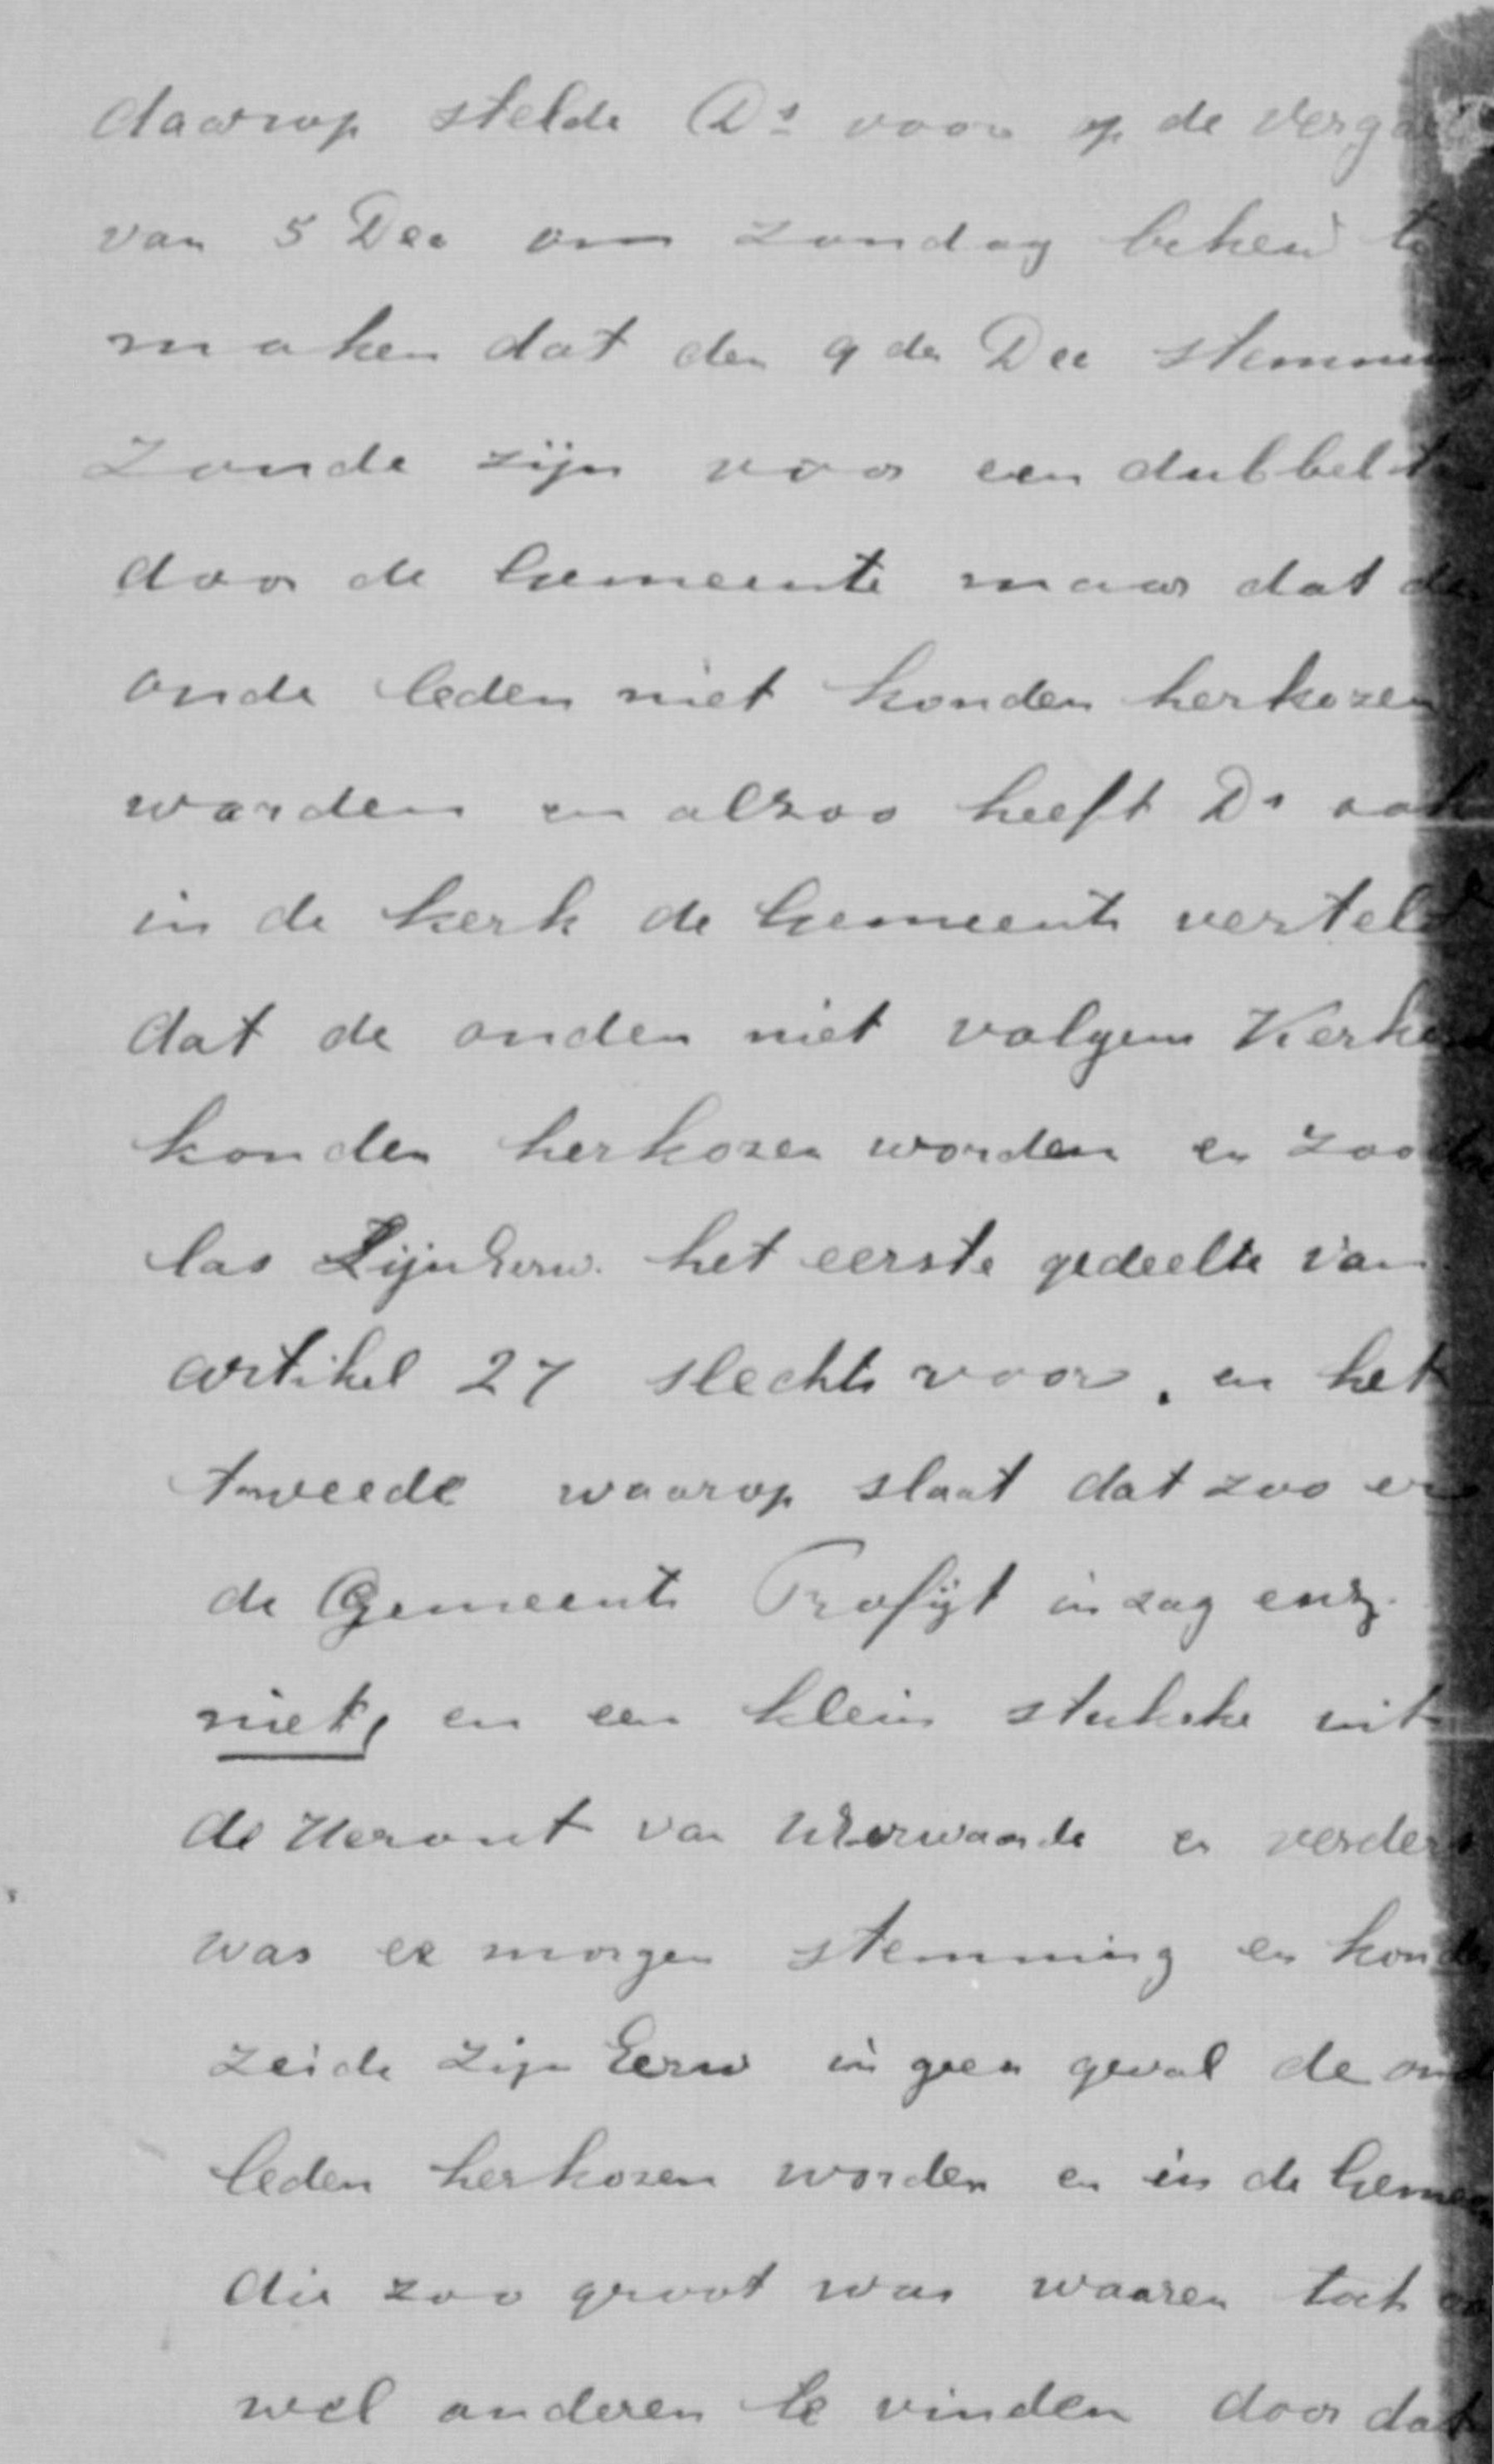 daarop stelde Ds voor op de verga
van 5 Dec om Zondag beken te
maken dat den 9 de Dec stemming
Zoude zijn voor een dubbelt
door de Gemeente maar dat de
oude leden niet konden herkozen
worden en alzoo heeft Ds ook
in de kerk de Gemeente verteld
dat de ouden niet volgens Kerk
konden herkozen worden en zoo
las ZijnEerw. het eerste gedeelte van
artikel 27 slechts voor, en het
tweede waarop slaat dat zoo er
de Gemeente Profijt in zag enz.
niet, en een klein stukske uit
de Heraut van en verder
was er morgen stemming en konde
zeide Zijn Eerw in geen geval de oud
leden herkozen worden en in de Gemeen
die zoo groot was waaren toch
wel anderen te vinden door dat